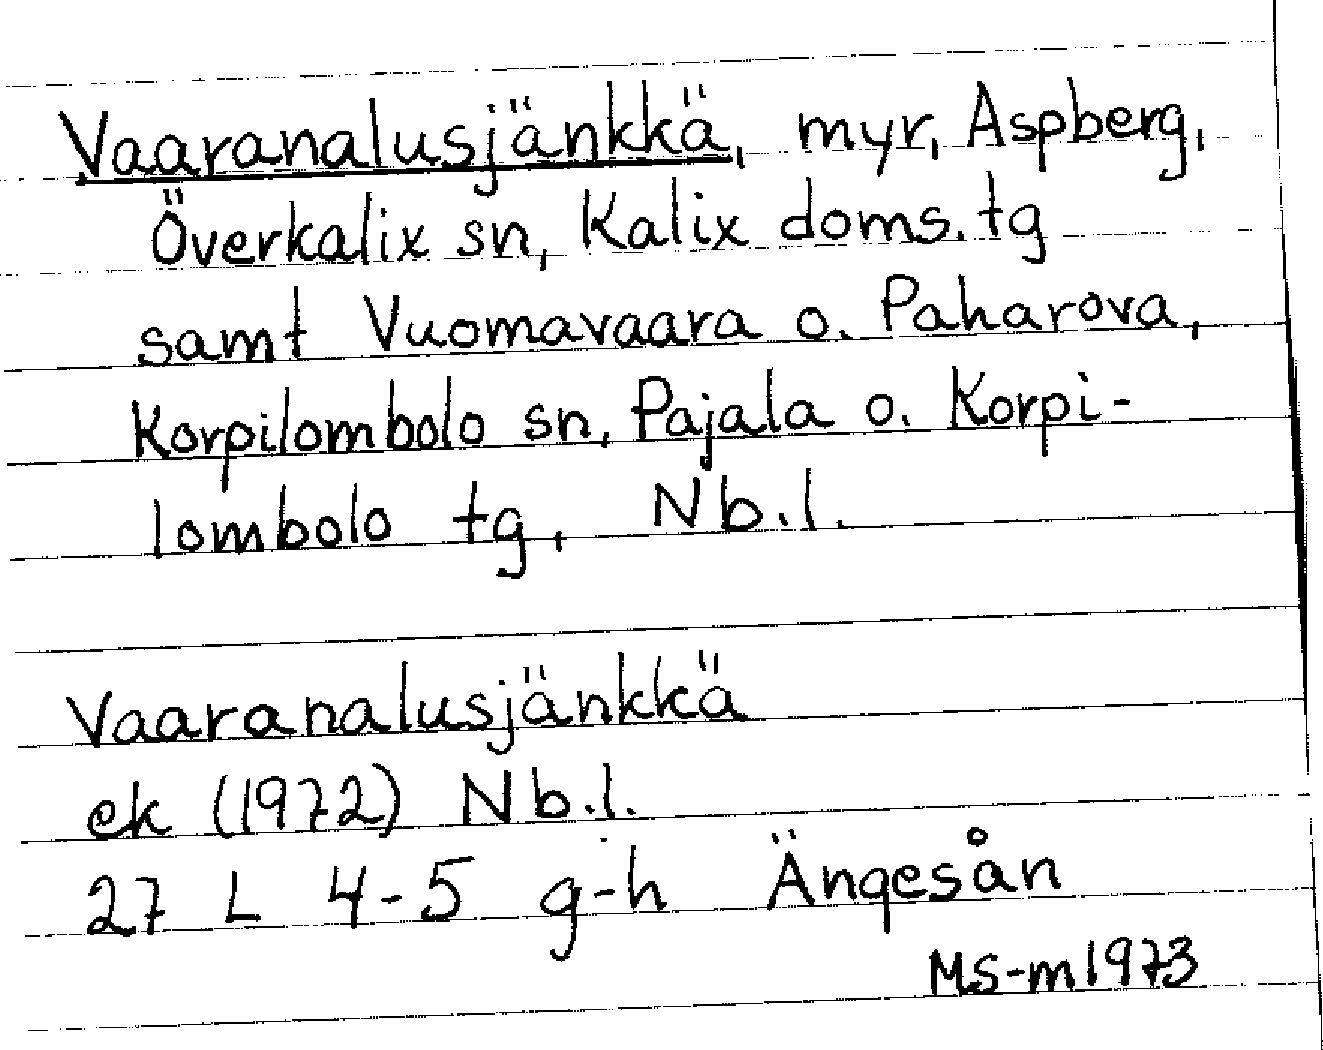 Vaaranalusjänkkä, myr, Aspberg,
Överkalix sn, Kalix doms. tg
samt Vuomavaara o. Paharova,
Korpilombolo sn, Pajala o. Korpi-
lombolo tg, Nb.l.
Vaaranalusjänkkä
ek (1972) Nb.l.
27 L 4-5 g-h Ängesån
MS-m 1973